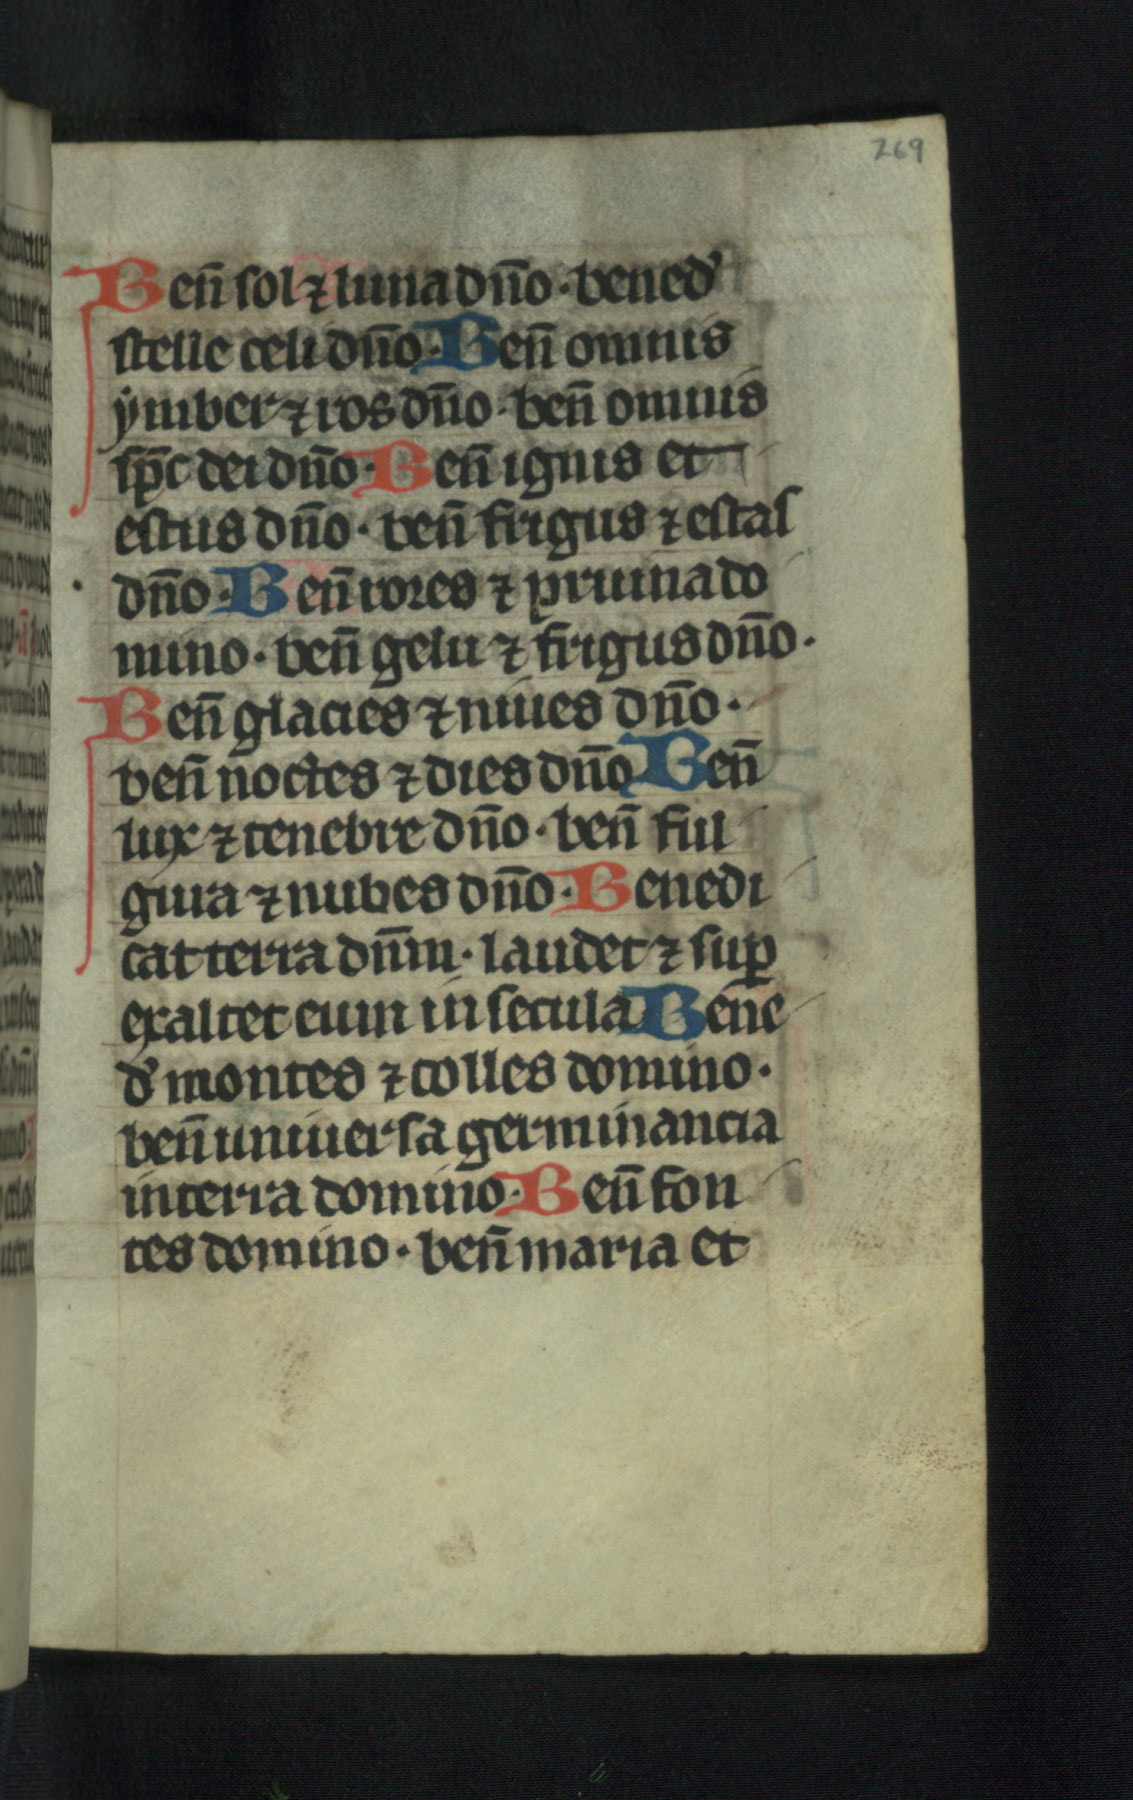 269
Ben̄ sol ⁊ luna dn̄o · bened̾
stelle celi dn̄o · Ben̄ omnis
ymber ⁊ ros dn̄o · ben̄ omnis
sp̄c dei dn̄o · Ben̄ ignis et
estus dn̄o · ben̄ frigus ⁊ estas
dn̄o · Ben̄ rores ⁊ pruina do
mino · ben̄ gelu ⁊ frigus dn̄o ·
Ben̄ glacies ⁊ niues dn̄o ·
ben̄ noctes ⁊ dies dn̄o Ben̄
lux ⁊ tenebre dn̄o · ben̄ ful
gura ⁊ nubes dn̄o · Benedi
cat terra dn̄m · laudet ⁊ suꝑ
exaltet eum in secula Bene
d̾ montes ⁊ colles domino ·
ben̄ uniuersa germinancia
in terra domino · Ben̄ fon
tes domino · ben̄ maria et